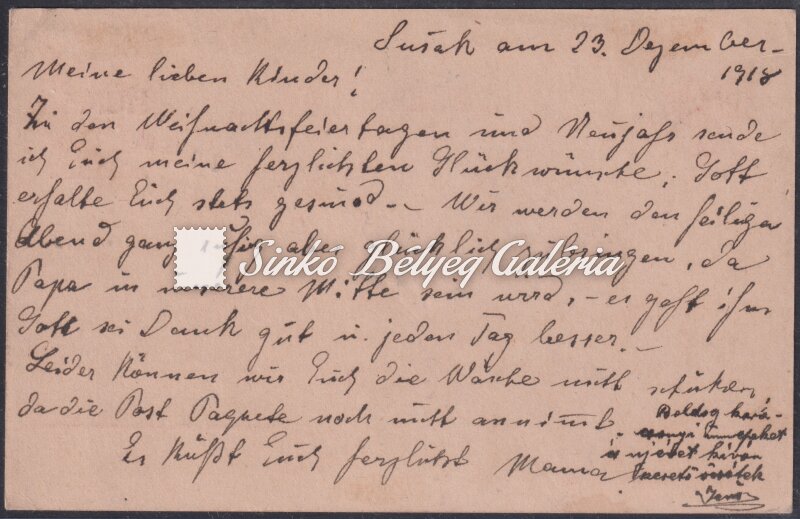 Sušak am 23. Dezember
1918
Meine lieben Kinder!
Zu den Weihnachtsfeiertagen und Neujahr sende
ich Euch meine herzlichsten Glückwünsche, Gott
erhalte Euch stets gesund. – Wir werden den heiligen
Abend ganz aber glücklich zubringen, da
Papa in unsere Mitte sein wird, – es geht ihm
Gott sei Dank gut u. jeden Tag besser. –
Leider können wir Euch die Wäsche nicht schicken,
da die Post Paquete noch nicht annimmt
Es küßt Euch herzlichst Mama
Boldog kará-
csonyi ünnepeket
és ujévet kíván
szerető öcsétek
Sinkó Bélyeg Galéria